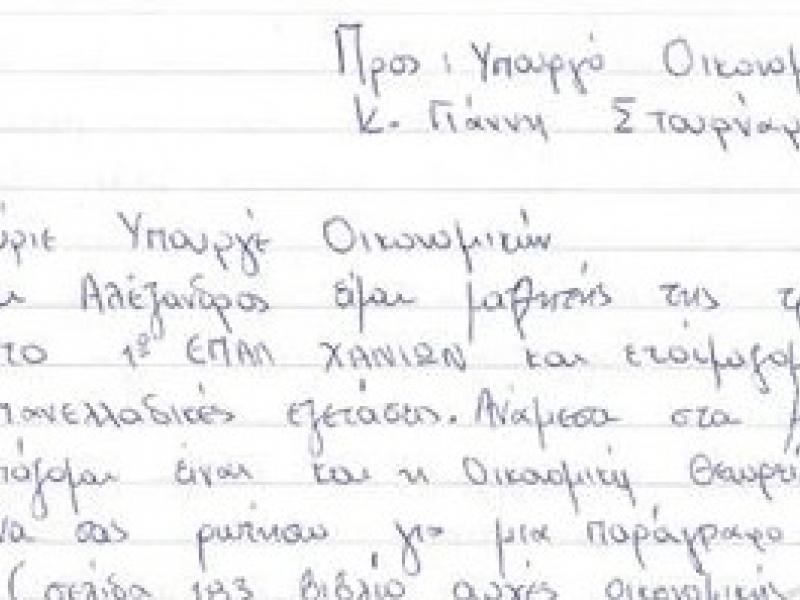 Προς: Υπουργό Οικονομ
κ. Γιάννη Στουρνάρ
ύριε Υπουργέ Οικονομικών
ι Αλέξανδρος είμαι μαθητής της τρ
το 1º ΕΠΑΛ ΧΑΝΙΩΝ και ετοιμαζομ
πανελλαδικές εξετάσεις. Ανάμεσα στα μ
τάζομαι είναι και η Οικονομική Θεωρί
να σας ρωτήσω για μια παράγραφο
(σελίδα 183 βιβλίο αρχές οικονομικής